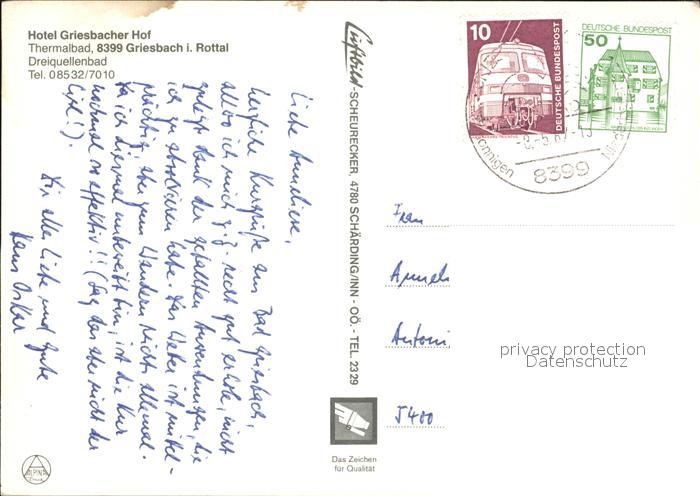 Hotel Griesbacher Hof
Thermalbad, 8399 Griesbach i. Rottal
Dreiquellenbad
Tel. 08532/7010
Liebe Anneliese,
herzliche Kurgrüße aus Bad Griesbach,
allwo ich mich z.Z. recht gut erhole, nicht
zuletzt dank der gehaltten Anwendungen, die
ich zu absolvieren habe. Das Wetter ist mittel-
prächtig, aber zum Wandern reicht's allemal.
Da ich diesmal unbeweibt bin, ist die Kur
nochmal so effektiv!! (Sag das aber nicht der
!).
Dir alles Liebe und Gute
Hans Oskar
Luftbild-SCHEURECKER, 4780 SCHÄRDING/INN - OÖ. - TEL. 2329
Das Zeichen
für Qualität
ALPINA
10
DEUTSCHE BUNDESPOST
DEUTSCHE BUNDESPOST
50
8399
Frau
Antoni
5400
privacy protection
Datenschutz